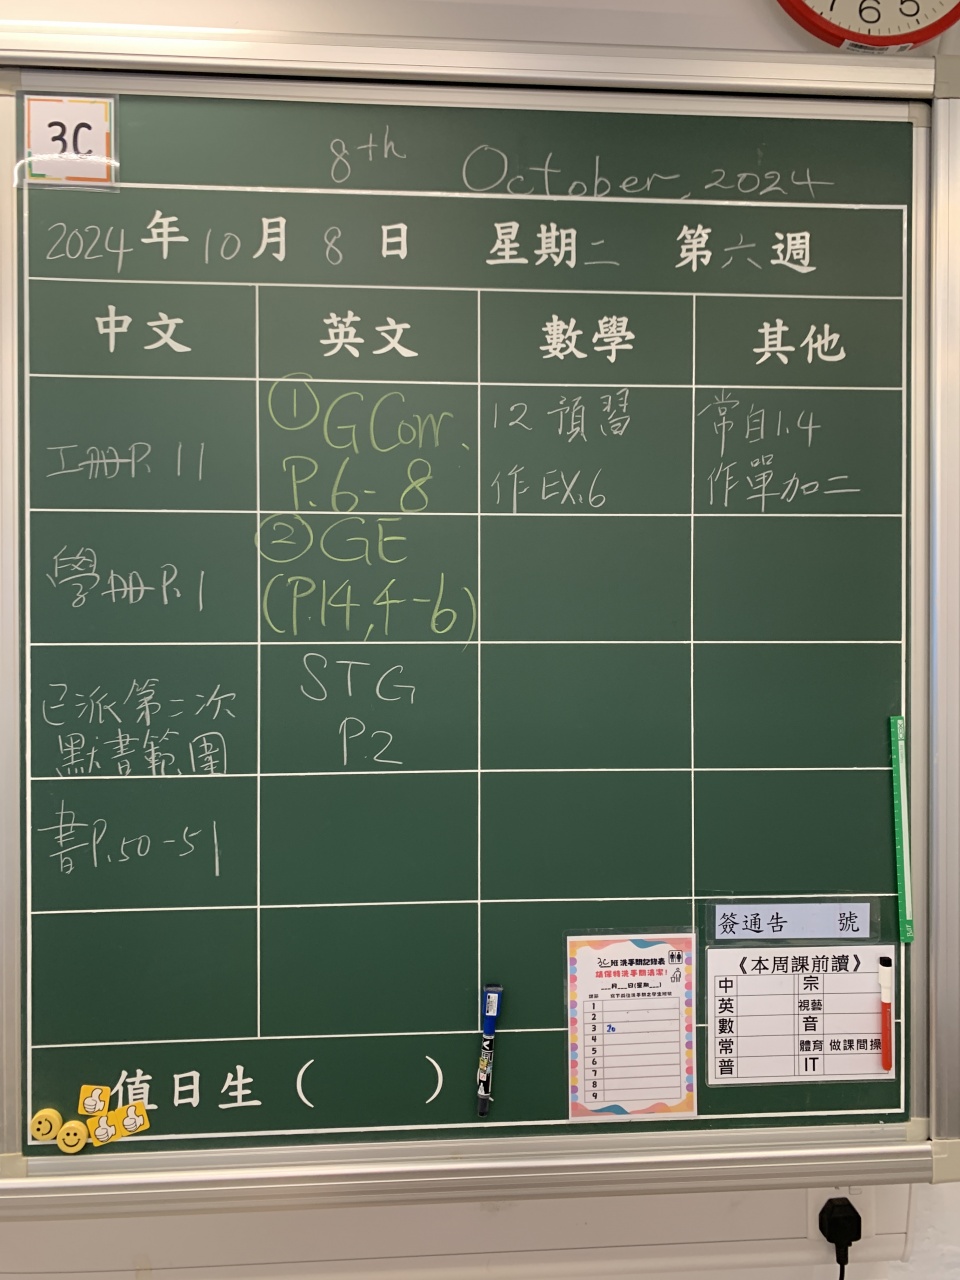 7 6 5
3C
8th October, 2024
2024年10月8日 星期二 第六週
中文 英文 數學 其他
工冊P.11
① G Corr.
P.6-8
12 預習
作 EX.6
常自1.4
作單加二
學冊P.1
② GE
(P.14, 4-6)
已派第二次
默書範圍
STG
P.2
書P.50-51
簽通告 號
3C班洗手間記錄表
請保持洗手間清潔!
__月__日(星期__)
1
2
3 20
4
5
6
7
8
9
《本周課前讀》
中 宗
英 視藝
數 音
常 體育 做課間操
普 IT
值日生( )